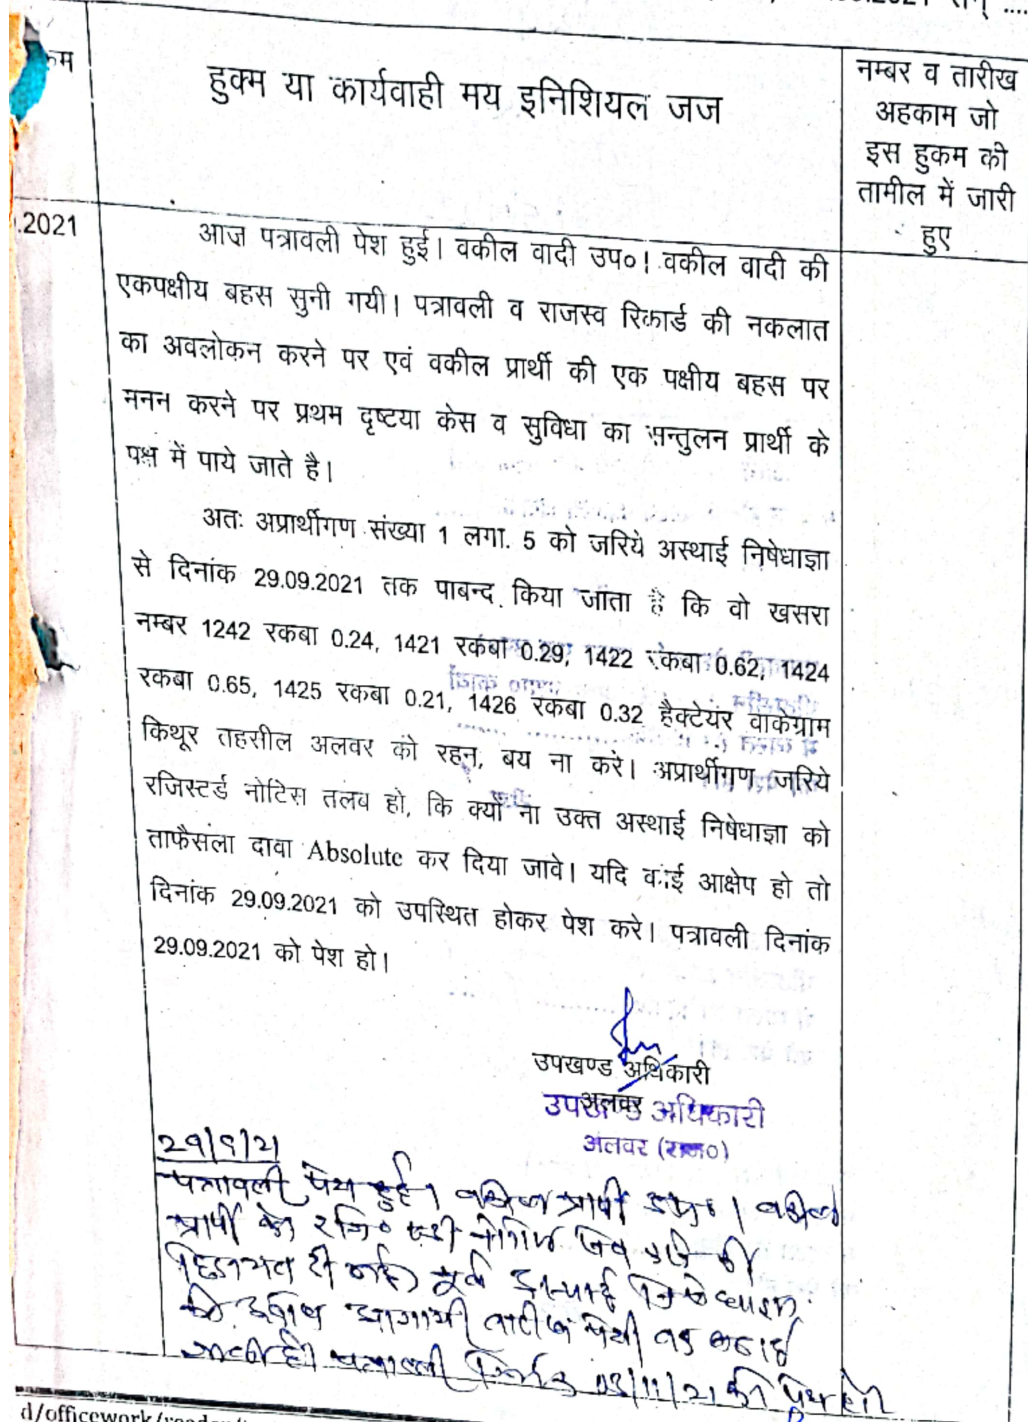 हुक्म या कार्यवाही मय इनिशियल जज
नम्बर व तारीख
अहकाम जो
इस हुकम की
तामील में जारी
हुए
.2021
आज पत्रावली पेश हुई। वकील वादी उप०। वकील वादी की
एकपक्षीय बहस सुनी गयी। पत्रावली व राजस्व रिकार्ड की नकलात
का अवलोकन करने पर एवं वकील प्रार्थी की एक पक्षीय बहस पर
मनन करने पर प्रथम दृष्टया केस व सुविधा का सन्तुलन प्रार्थी के
पक्ष में पाये जाते है।
अतः अप्रार्थीगण संख्या 1 लगा. 5 को जरिये अस्थाई निषेधाज्ञा
से दिनांक 29.09.2021 तक पाबन्द किया जाता है कि वो खसरा
नम्बर 1242 रकबा 0.24, 1421 रकबा 0.29, 1422 रकबा 0.62, 1424
रकबा 0.65, 1425 रकबा 0.21, 1426 रकबा 0.32 हैक्टेयर वाकेग्राम
किथूर तहसील अलवर को रहन, बय ना करे। अप्रार्थीगण जरिये
रजिस्टर्ड नोटिस तलब हो, कि क्यों ना उक्त अस्थाई निषेधाज्ञा को
ताफैसला दावा Absolute कर दिया जावे। यदि कोई आक्षेप हो तो
दिनांक 29.09.2021 को उपस्थित होकर पेश करे। पत्रावली दिनांक
29.09.2021 को पेश हो।
उपखण्ड अधिकारी
अलवर
उपखण्ड अधिकारी
अलवर (राज०)
29/9/21
पत्रावली पेश हुई। वकील प्रार्थी उप०। वकील
प्रार्थी को रजि० एडी नोटिस पेश करने की
हिदायत दी गई। पूर्व अस्थाई निषेधाज्ञा
की अवधि आगामी तारीख पेशी तक बढाई
जाती है। पत्रावली दिनांक 03/11/21 को पेश हो
d/officework/reader/